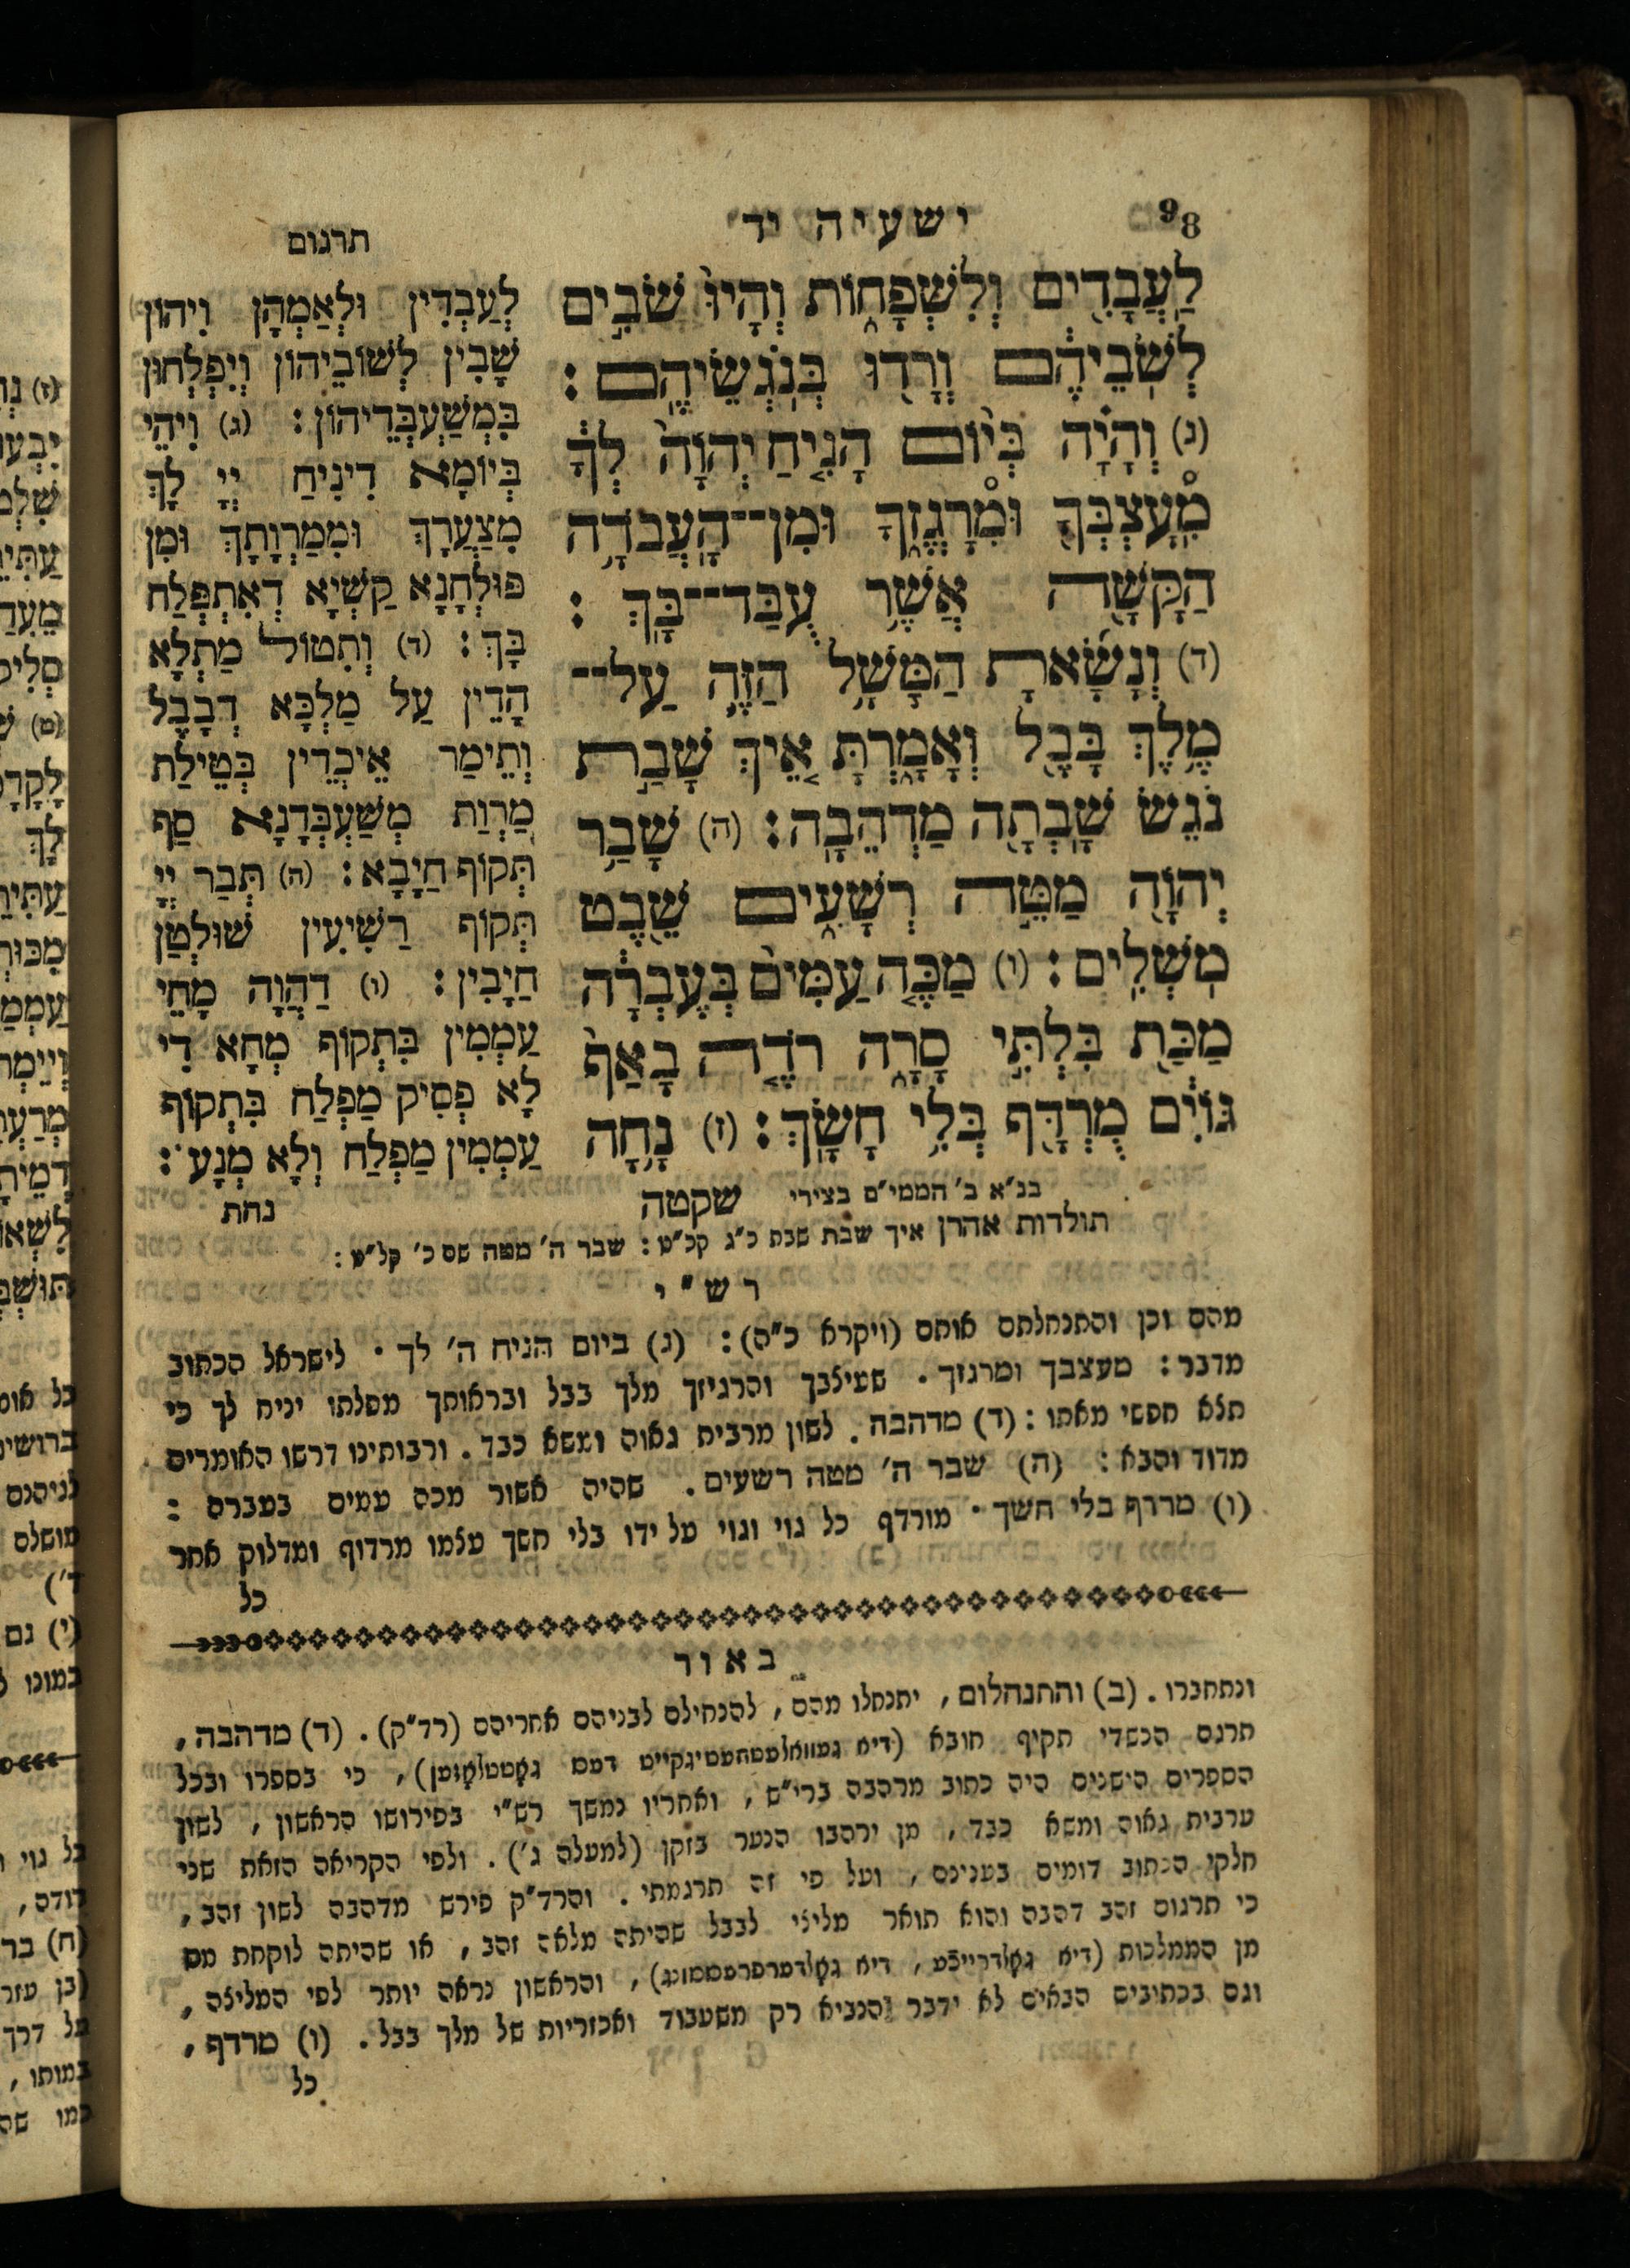 98
ישעיה יד
תרגום
לַעֲבָדִים וְלִשְׁפָחוֹת וְהָיוּ שֹׁבִים
לְשֹׁבֵיהֶם וְרָדוּ בְּנֹגְשֵׂיהֶם:
(ג) וְהָיָה בְּיוֹם הָנִיחַ יְהוָֹה לְךָ
מֵעָצְבְּךָ וּמֵרָגְזֶךָ וּמִן־הָעֲבֹדָה
הַקָּשָׁה אֲשֶׁר עֻבַּד־בָּךְ:
(ד) וְנָשָׂאתָ הַמָּשָׁל הַזֶּה עַל־
מֶלֶךְ בָּבֶל וְאָמָרְתָּ אֵיךְ שָׁבַת
נֹגֵשׂ שָׁבְתָה מַדְהֵבָה: (ה) שָׁבַר
יְהוָֹה מַטֵּה רְשָׁעִים שֵׁבֶט
מֹשְׁלִים: (ו) מַכֶּה עַמִּים בְּעֶבְרָה
מַכַּת בִּלְתִּי סָרָה רֹדֶה בָאַף
גּוֹיִם מֻרְדָּף בְּלִי חָשָׂךְ: (ז) נָחָה
לְעַבְדִין וּלְאַמְהָן וִיהוֹן
שָׁבִין לְשׁוֹבֵיהוֹן וְיִפְלְחוּן
בִּמְשַׁעְבְּדֵיהוֹן: (ג) וִיהֵי
בְּיוֹמָא דִינִיחַ יְיָ לָךְ
מִצַּעֲרָךְ וּמִמַּרְוָתָךְ וּמִן
פּוּלְחָנָא קַשְׁיָא דְאִתְפְּלַח
בָּךְ: (ד) וְתִטּוֹל מַתְלָא
הָדֵין עַל מַלְכָּא דְבָבֶל
וְתֵימַר אֵיכְדֵין בְּטֵילַת
מַרְוַת מְשַׁעְבְּדָנָא סַף
תְּקוֹף חַיָבָא: (ה) תְּבַר יְיָ
תְּקוֹף רַשִׁיעִין שׁוּלְטַן
חַיָבִין: (ו) דַהֲוָה מָחֵי
עַמְמִין בִּתְקוֹף מְחָא דִי
לָא פְסִיק מַפְלַח בִּתְקוֹף
עַמְמִין מַפְלַח וְלָא מְנָע:
בנ״א ב׳ הממי״ם בצירי
שקטה
נחת
תולדות אהרן איך שבת שבת כ״ג קכ״ט: שבר ה׳ מטה שם כ׳ קל״ט:
רש״י
מהם וכן והתנחלתם אותם (ויקרא כ״ה): (ג) ביום הניח ה׳ לך. לישראל הכתוב
מדבר: מעצבך ומרגזך. שעילבך והרגיזך מלך בבל ובראותך מפלתו יניח לך כי
תלא חפשי מאתו: (ד) מדהבה. לשון מרבית גאוה ומשא כבד. ורבותינו דרשו האומרים
מדוד והבא: (ה) שבר ה׳ מטה רשעים. שהיה אשור מכה עמים בעברה:
(ו) מרדף בלי חשך. מורדף כל גוי וגוי על ידו בלי חשך עלמו מרדוף ומדלוק אחר
כל
באור
ונתחברו. (ב) והתנחלום, יתנחלו מהם, להנחילם לבניהם אחריהם (רד״ק). (ד) מדהבה,
תרגם הכשדי תקיף חובא (דיא געוואלטטהעטיגקייט דעס גאָטטלאָזען), כי בספרו ובכל
הספרים הישנים היה כתוב מרהבה ברי״ש, ואחריו נמשך רש״י בפירושו הראשון, לשון
ערבית גאוה ומשא כבד, מן ירהבו הנער בזקן (למעלה ג׳). ולפי הקריאה הזאת שני
חלקי הכתוב דומים בענינם, ועל פי זה תרגמתי. והרד״ק פירש מדהבה לשון זהב,
כי תרגום זהב דהבה והוא תואר מליצי לבבל שהיתה מלאה זהב, או שהיתה לוקחת מס
מן הממלכות (דיא גאָלדרייכֿע, דיא גאָלדערפרעססונג), והראשון נראה יותר לפי המליצה,
וגם בכתובים הבאים לא ידבר הנביא רק משעבוד ואכזריות של מלך בבל. (ו) מרדף,
כל